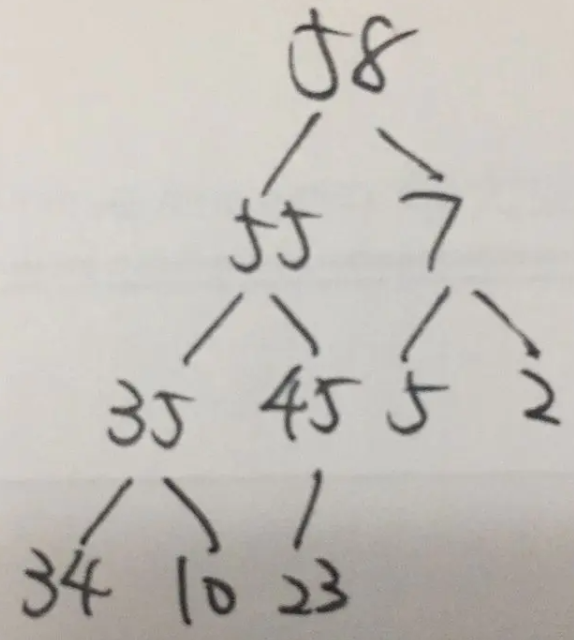 58
55 7
35 45 5 2
34 10 23